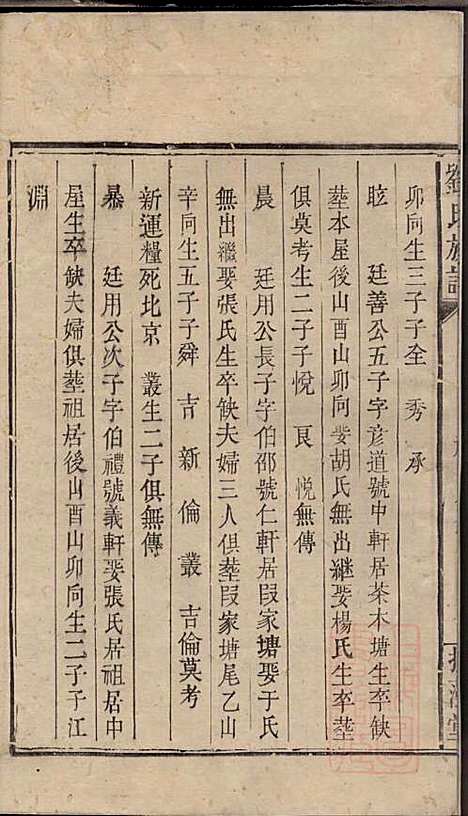 劉氏族譜
卯向生三子子全 秀 承
昡 廷善公五子字彦道號中軒居茶木塘生卒缺
塟本屋後山酉山卯向娶胡氏無出継娶楊氏生卒塟
俱莫考生二子子悅 良 悅無傳
晨 廷用公長子字伯邵號仁軒居叚家塘娶于氏
無出繼娶張氏生卒缺夫婦三人俱塟叚家塘尾乙山
辛向生五子子舜 吉 新 倫 叢 吉倫莫考
新運糧死北京 叢生二子俱無傳
暴 廷用公次子字伯禮號義軒娶張氏居祖居中
屋生卒缺夫婦俱塟祖居後山酉山卯向生二子子江
淵